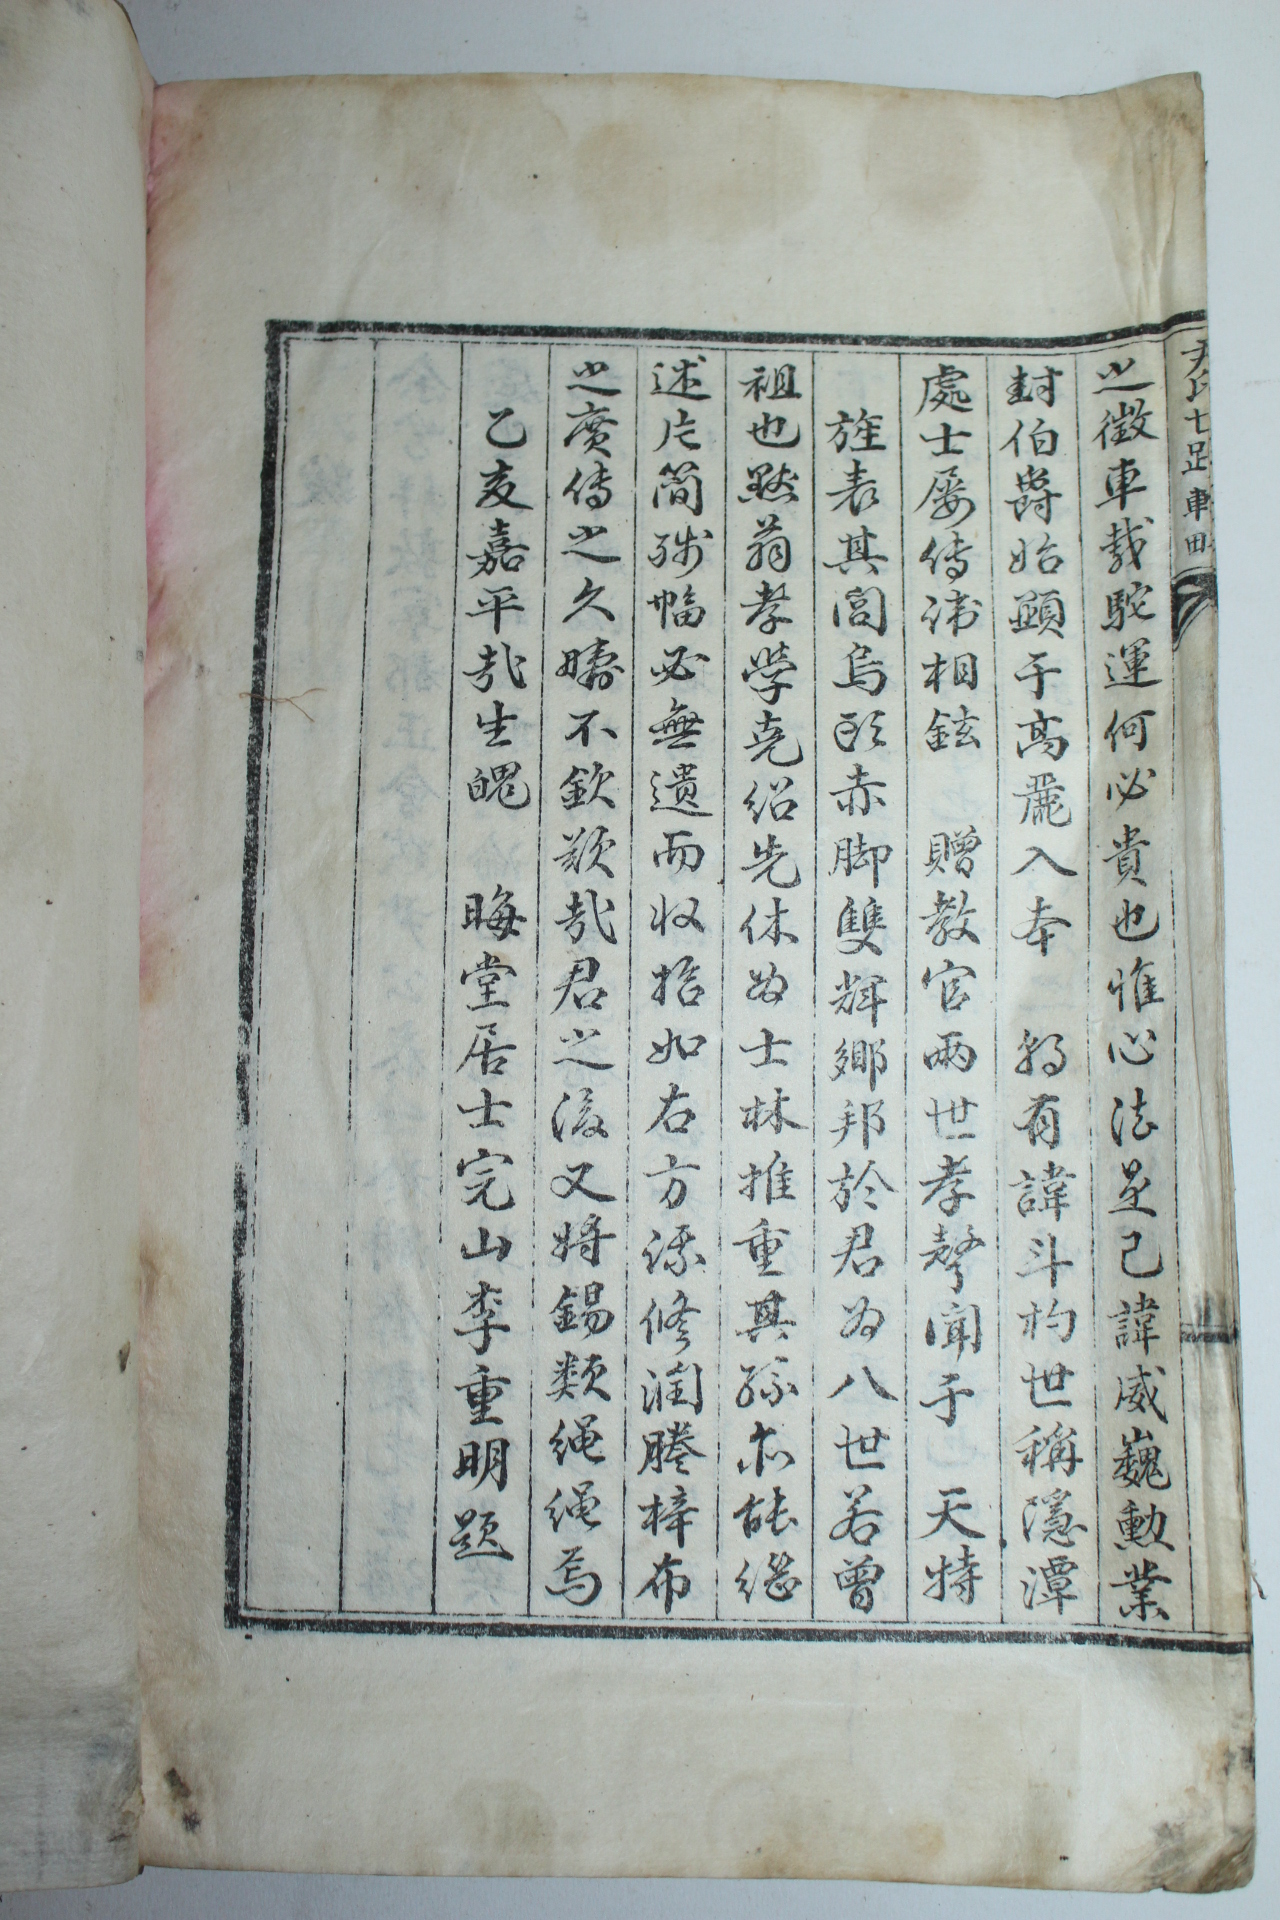 之徵車載駝運何必貴也惟心法足己諱威巍勳業
封伯爵始顯于高麗入本 朝有諱斗杓世稱隱潭
處士屡傳諱相鉉 贈教官兩世孝聲聞于 天特
旌表其閭烏頭赤脚雙輝鄉邦於君為八世若曾
祖也默翁孝學克紹先休為士林推重其孫亦能繼
述片簡殘幅必無遺而收拾如右方添修潤謄梓布
之廣傳之久疇不欽歎哉君之後又將錫類繩繩焉
乙亥嘉平哉生魄 晦堂居士完山李重明題
尹氏 車田